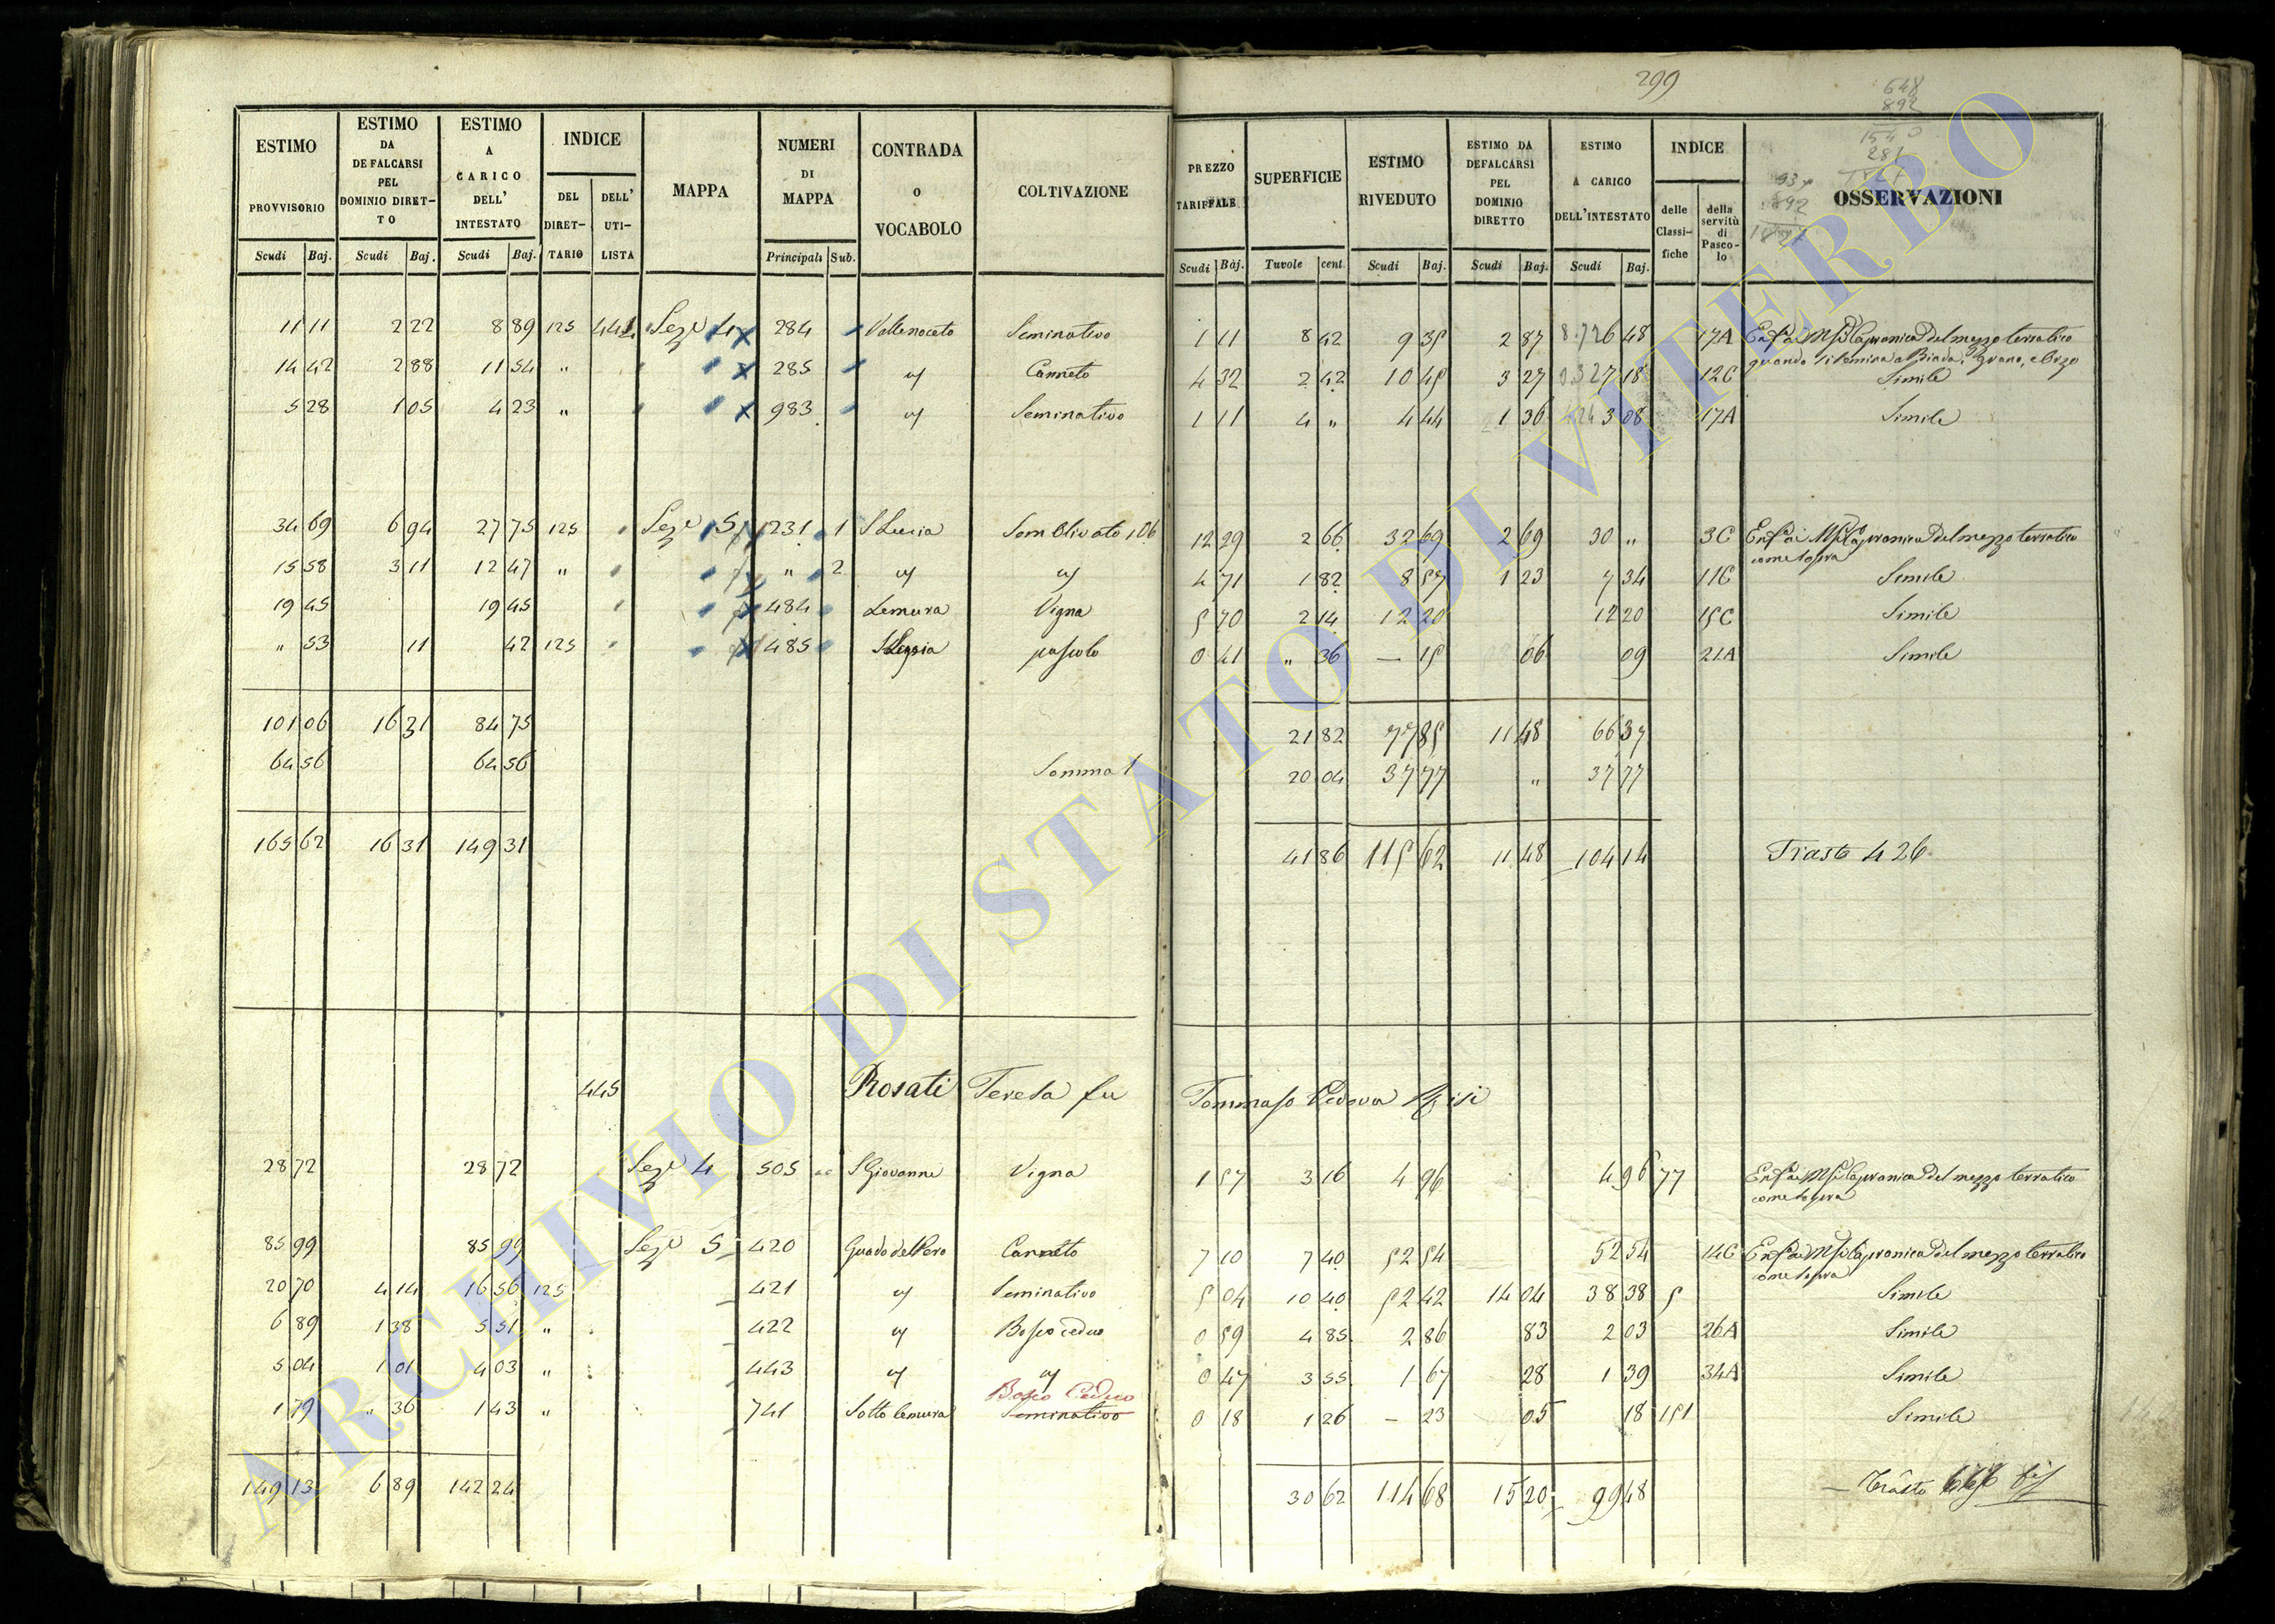 299
648
892
1540
281
ESTIMO PROVVISORIO Scudi Baj.
ESTIMO DA DEFALCARSI PEL DOMINIO DIRETTO Scudi Baj.
ESTIMO A CARICO DELL' INTESTATO Scudi Baj.
INDICE DEL DIRETTARIO DELL' UTILISTA
MAPPA
NUMERI DI MAPPA Principali Sub.
CONTRADA o VOCABOLO
COLTIVAZIONE
PREZZO TARIFFALE Scudi Baj.
SUPERFICIE Tavole cent.
ESTIMO RIVEDUTO Scudi Baj.
ESTIMO DA DEFALCARSI PEL DOMINIO DIRETTO Scudi Baj.
ESTIMO A CARICO DELL'INTESTATO Scudi Baj.
INDICE delle Classifiche della servitù di Pascolo
OSSERVAZIONI
11 11 2 22 8 89 125 444 Sez.e 4 284 Vallenoceto Seminativo 1 11 8 42 9 35 2 87 6 48 17A Capranica del mezzo terratico
quando si semina a Biada, Grano, e Orzo
14 42 2 88 11 54 " 285 Canneto 4 32 2 42 10 45 3 27 7 18 12C Simile
5 28 1 05 4 23 " 983 Seminativo 1 11 4 " 4 44 1 36 3 08 17A Simile
34 69 6 94 27 75 125 Sez.e 5 1231 1 S Lucia Sem Olivato 106 12 29 2 66 32 69 2 69 30 " 3C Capranica del mezzo terratico
come sopra
15 58 3 11 12 47 " " 2 4 71 1 82 8 57 1 23 7 34 11C Simile
19 45 19 45 484 Lemura Vigna 5 70 2 14 12 20 12 20 15C Simile
" 53 11 42 125 485 pascolo 0 41 " 36 — 15 06 09 21A Simile
101 06 16 31 84 75 21 82 77 85 11 48 66 37
64 56 64 56 Somma 20 04 37 77 " 37 77
165 62 16 31 149 31 41 86 115 62 11 48 104 14 Trasto 426
445 Rosati Teresa fu Tommaso Vedova
28 72 28 72 Sez.e 4 505 S Giovanni Vigna 1 57 3 16 4 96 4 96 77 Capranica del mezzo terratico
come sopra
85 99 85 99 Sez.e 5 420 Guado del Pero Canneto 7 10 7 40 52 54 52 54 14C Capranica del mezzo terratico
come sopra
20 70 4 14 16 56 125 421 Seminativo 5 04 10 40 52 42 14 04 38 38 5 Simile
6 89 1 38 5 51 " 422 Bosco ceduo 0 59 4 85 2 86 83 2 03 26A Simile
5 04 1 01 4 03 " 443 0 47 3 55 1 67 28 1 39 34A Simile
Bosco Ceduo
1 79 " 36 1 43 " 741 Sotto lemura Seminativo 0 18 1 26 — 23 05 18 151 Simile
149 13 6 89 142 24 30 62 114 68 15 20 99 48 Trasto
ARCHIVIO DI STATO DI VITERBO